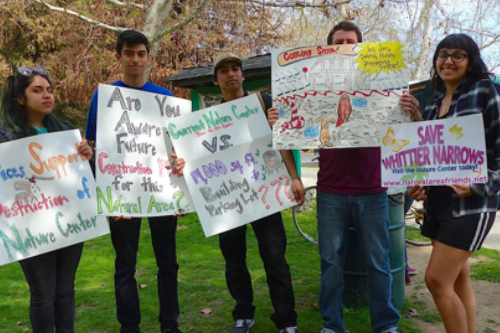 ices Support
Destruction of
Nature Center
Are You
Aware of
Future
Construction
for this
Natural Area?
Current Nature
Center
vs.
Building
Parking Lot
???
Coming Soon!
SAVE
WHITTIER NARROWS
Visit the Nature Center today!
www.naturalareafriends.net